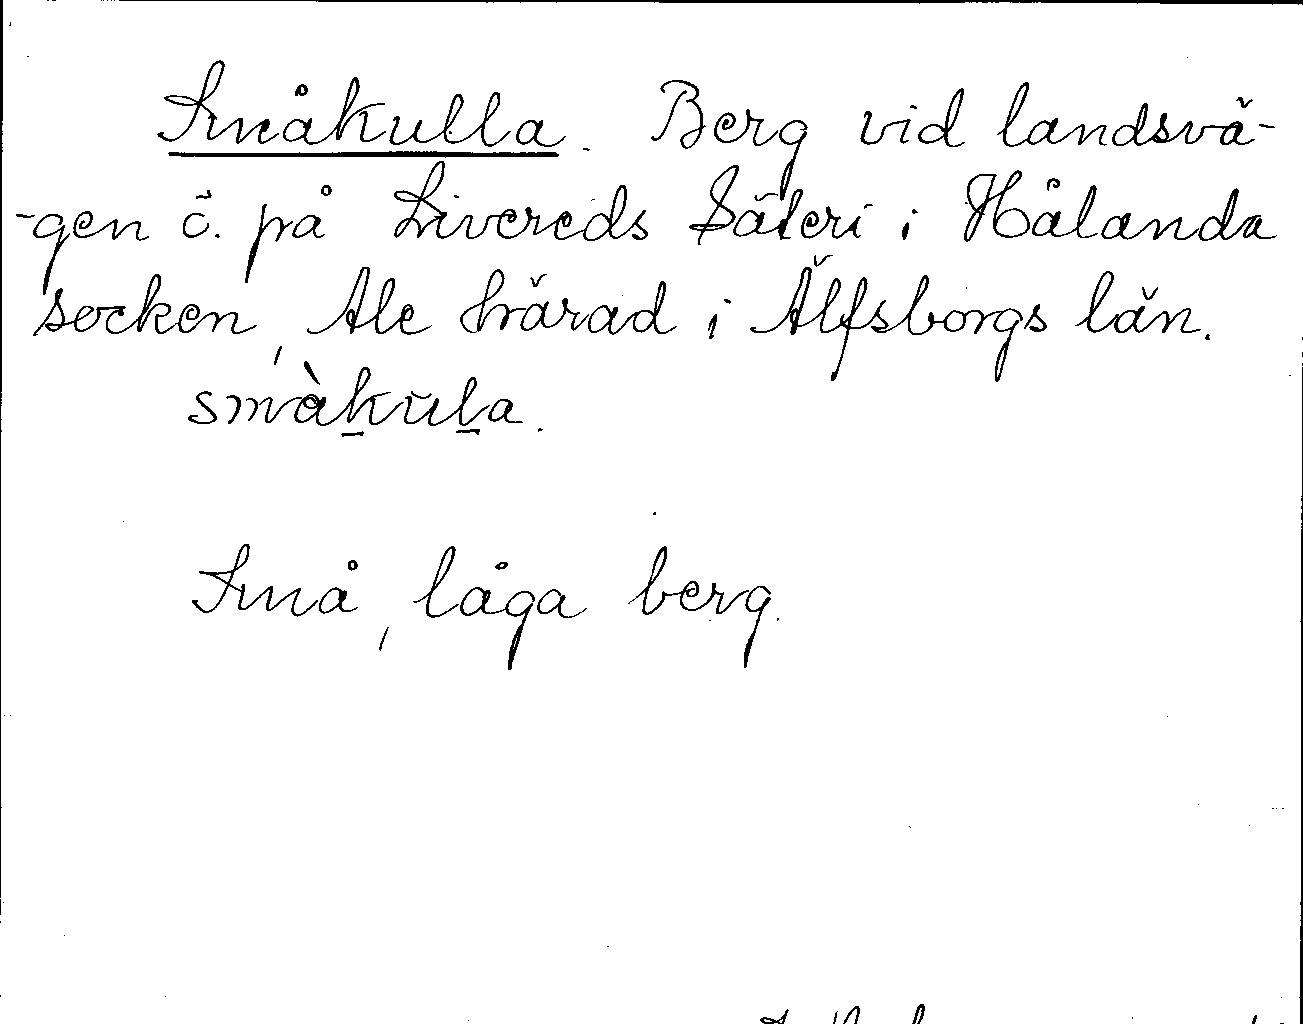 Småkulla. Berg vid landsvä-
-gen ö. på Livereds Säteri i Hålanda
socken, Ale härad i Älfsborgs län.
smàku̇la.
Små, låga berg.